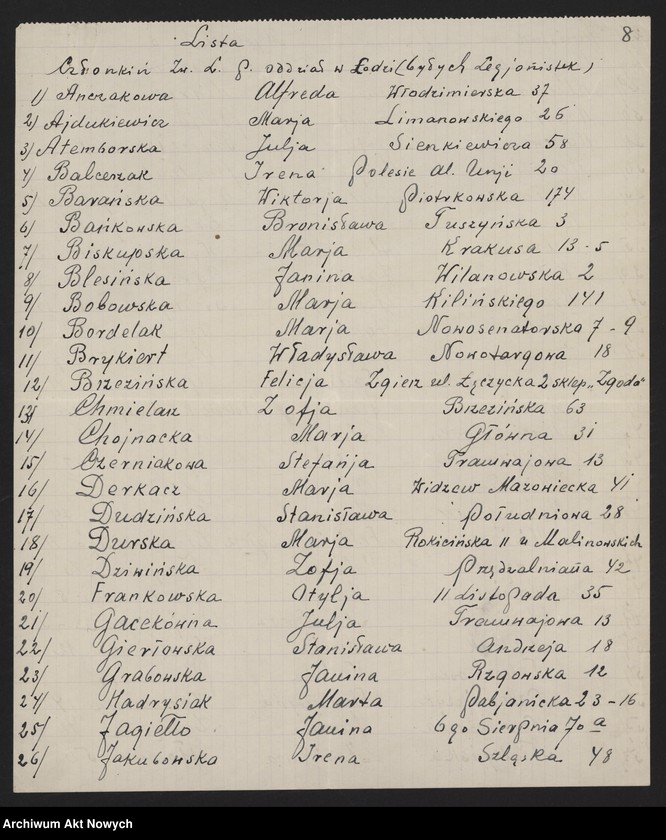 8
Lista
Członkiń Zw. L. P. oddział w Łodzi (byłych Legjonistek)
1/ Anczakowa Alfreda Włodzimierska 37
2/ Ajdukiewicz Marja Limanowskiego 26
3/ Atemborska Julja Sienkiewicza 58
4/ Balcerzak Irena Polesie Al. Unji 20
5/ Barańska Wiktorja Piotrkowska 174
6/ Bańkowska Bronisława Tuszyńska 3
7/ Biskupska Marja Krakusa 13 - 5
8/ Blesińska Janina Wilanowska 2
9/ Bobowska Marja Kilińskiego 141
10/ Bordelak Marja Nowosenatorska 7 - 9
11/ Brykiert Władysława Nowotargowa 18
12/ Brzezińska Felicja Zgierz ul. Łęczycka 2 sklep „Zgoda"
13/ Chmielarz Zofja Brzezińska 63
14/ Chojnacka Marja Główna 31
15/ Czerniakowa Stefańja Tramwajowa 13
16/ Derkacz Marja Widzew Mazowiecka 41
17/ Dudzińska Stanisława Południowa 28
18/ Durska Marja Rokicińska 11 u Malinowskich
19/ Dziwińska Zofja Przędzalniana 42
20/ Frankowska Otylja 11 Listopada 35
21/ Gacekówna Julja Tramwajowa 13
22/ Gierłowska Stanisława Andrzeja 18
23/ Grabowska Janina Rzgowska 12
24/ Hadrysiak Marta Pabjanicka 23 - 16
25/ Jagiełło Janina 6go Sierpnia 70 a
26/ Jakubowska Irena Szląska 48
Archiwum Akt Nowych